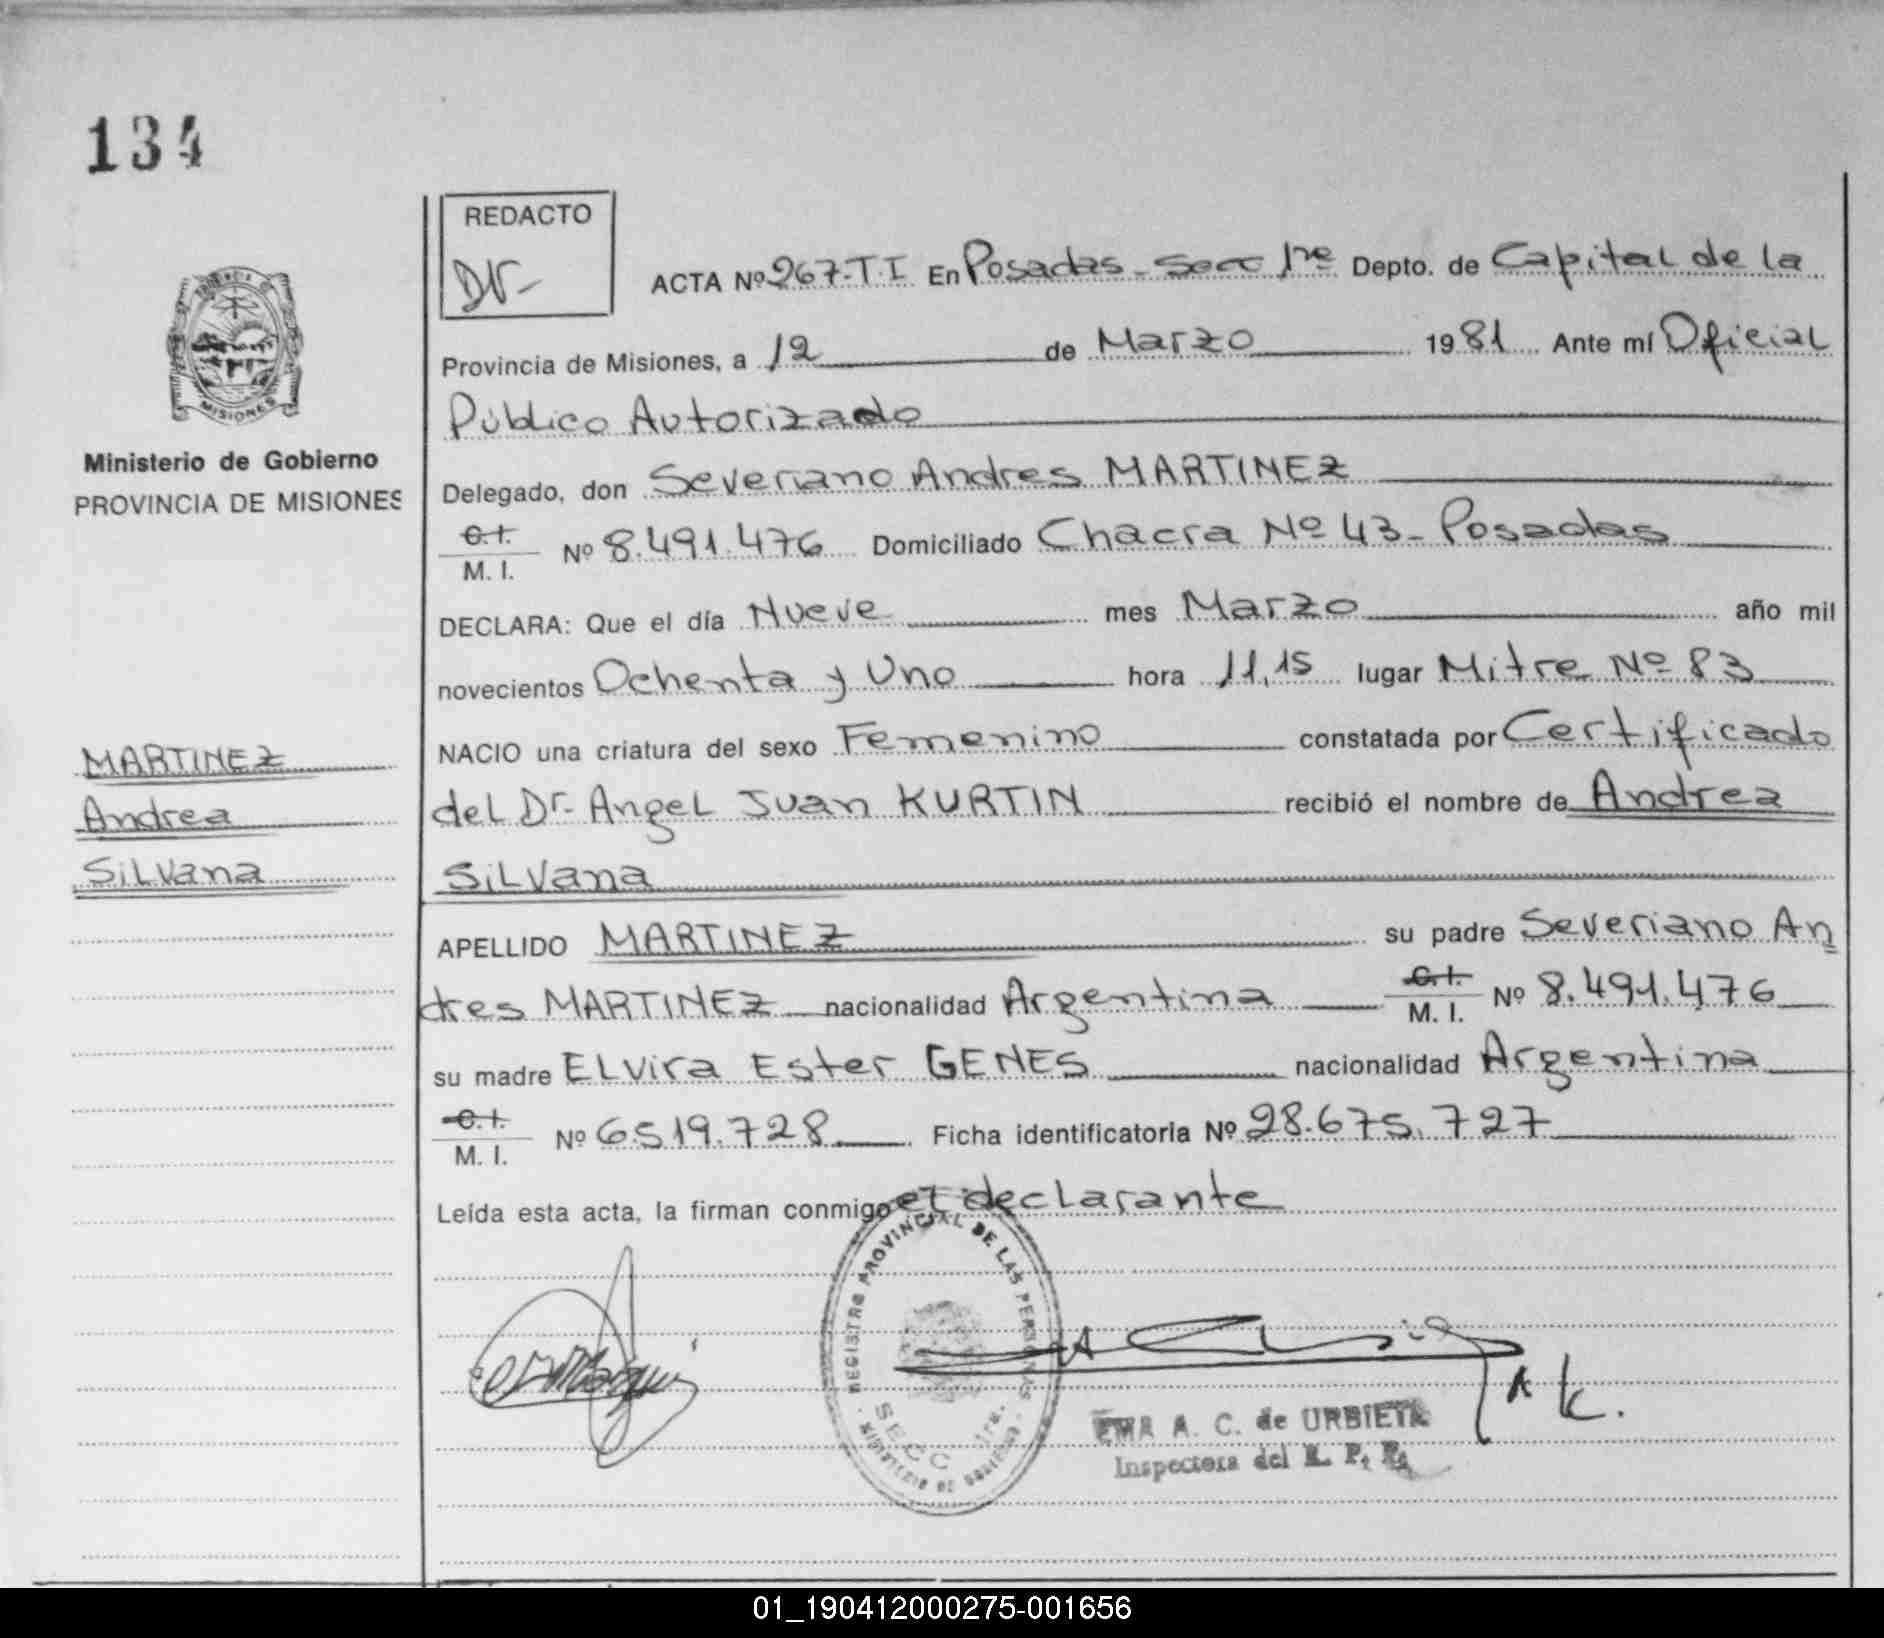 134
REDACTO
Dr-
ACTA Nº 267-T.I. En Posadas - Secc 1ra Depto. de Capital de la
Provincia de Misiones, a 12 de Marzo 1981 Ante mí Oficial
Público Autorizado
MISIONES
Ministerio de Gobierno
PROVINCIA DE MISIONES
Delegado, don Severiano Andres MARTINEZ
C.I. M.I. Nº 8.491.476 Domiciliado Chacra Nº 43 - Posadas
DECLARA: Que el día Nueve mes Marzo año mil
novecientos Ochenta y Uno hora 11,15 lugar Mitre Nº 83
NACIO una criatura del sexo Femenino constatada por Certificado
del Dr. Angel Juan KURTIN recibió el nombre de Andrea
Silvana
MARTINEZ
Andrea
Silvana
APELLIDO MARTINEZ su padre Severiano An
dres MARTINEZ nacionalidad Argentina C.I. M.I. Nº 8.491.476
su madre Elvira Ester GENES nacionalidad Argentina
C.I. M.I. Nº 6.519.728 Ficha identificatoria Nº 28.675.727
Leída esta acta, la firman conmigo el declarante
REGISTRO PROVINCIAL DE LAS PERSONAS
SECC 1ra.
MINISTERIO DE GOBIERNO
EMA A. C. de URBIETA
Inspectora del R. P. P.
01_190412000275-001656